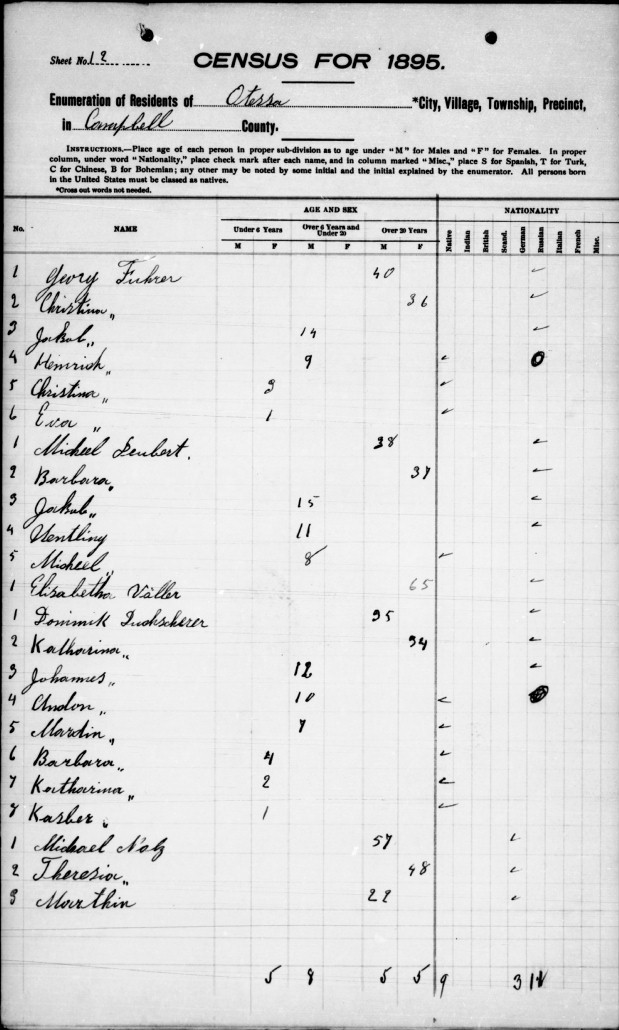 Sheet No. 12
CENSUS FOR 1895.
Enumeration of Residents of Otessa *City, Village, Township, Precinct,
in Campbell County.
INSTRUCTIONS.—Place age of each person in proper sub-division as to age under "M" for Males and "F" for Females. In proper
column, under word "Nationality," place check mark after each name, and in column marked "Misc.," place S for Spanish, T for Turk,
C for Chinese, B for Bohemian; any other may be noted by some initial and the initial explained by the enumerator. All persons born
in the United States must be classed as natives.
*Cross out words not needed.
No. NAME AGE AND SEX NATIONALITY
Under 6 Years Over 6 Years and Under 20 Over 20 Years
M F M F M F Native Indian British Scand. German Russian Italian French Misc.
1 Georg Fuhrer 40 ✓
2 Christina " 36 ✓
3 Jakob " 14 ✓
4 Heinrich " 9 ✓
5 Christina " 3 ✓
6 Eva " 1 ✓
1 Micheel 38 ✓
2 Barbara " 37 ✓
3 Jakob " 15 ✓
4 11 ✓
5 Micheel " 8 ✓
1 Elisabetha Väller 65 ✓
1 Dominik Duchscherer 35 ✓
2 Katharina " 34 ✓
3 Johannes " 12 ✓
4 Andon " 10 ✓
5 Mardin " 7 ✓
6 Barbara " 4 ✓
7 Katharina " 2 ✓
8 Kasber " 1 ✓
1 Michael 57 ✓
2 Theresia " 48 ✓
3 Marthin 22 ✓
5 8 5 5 9 3 11